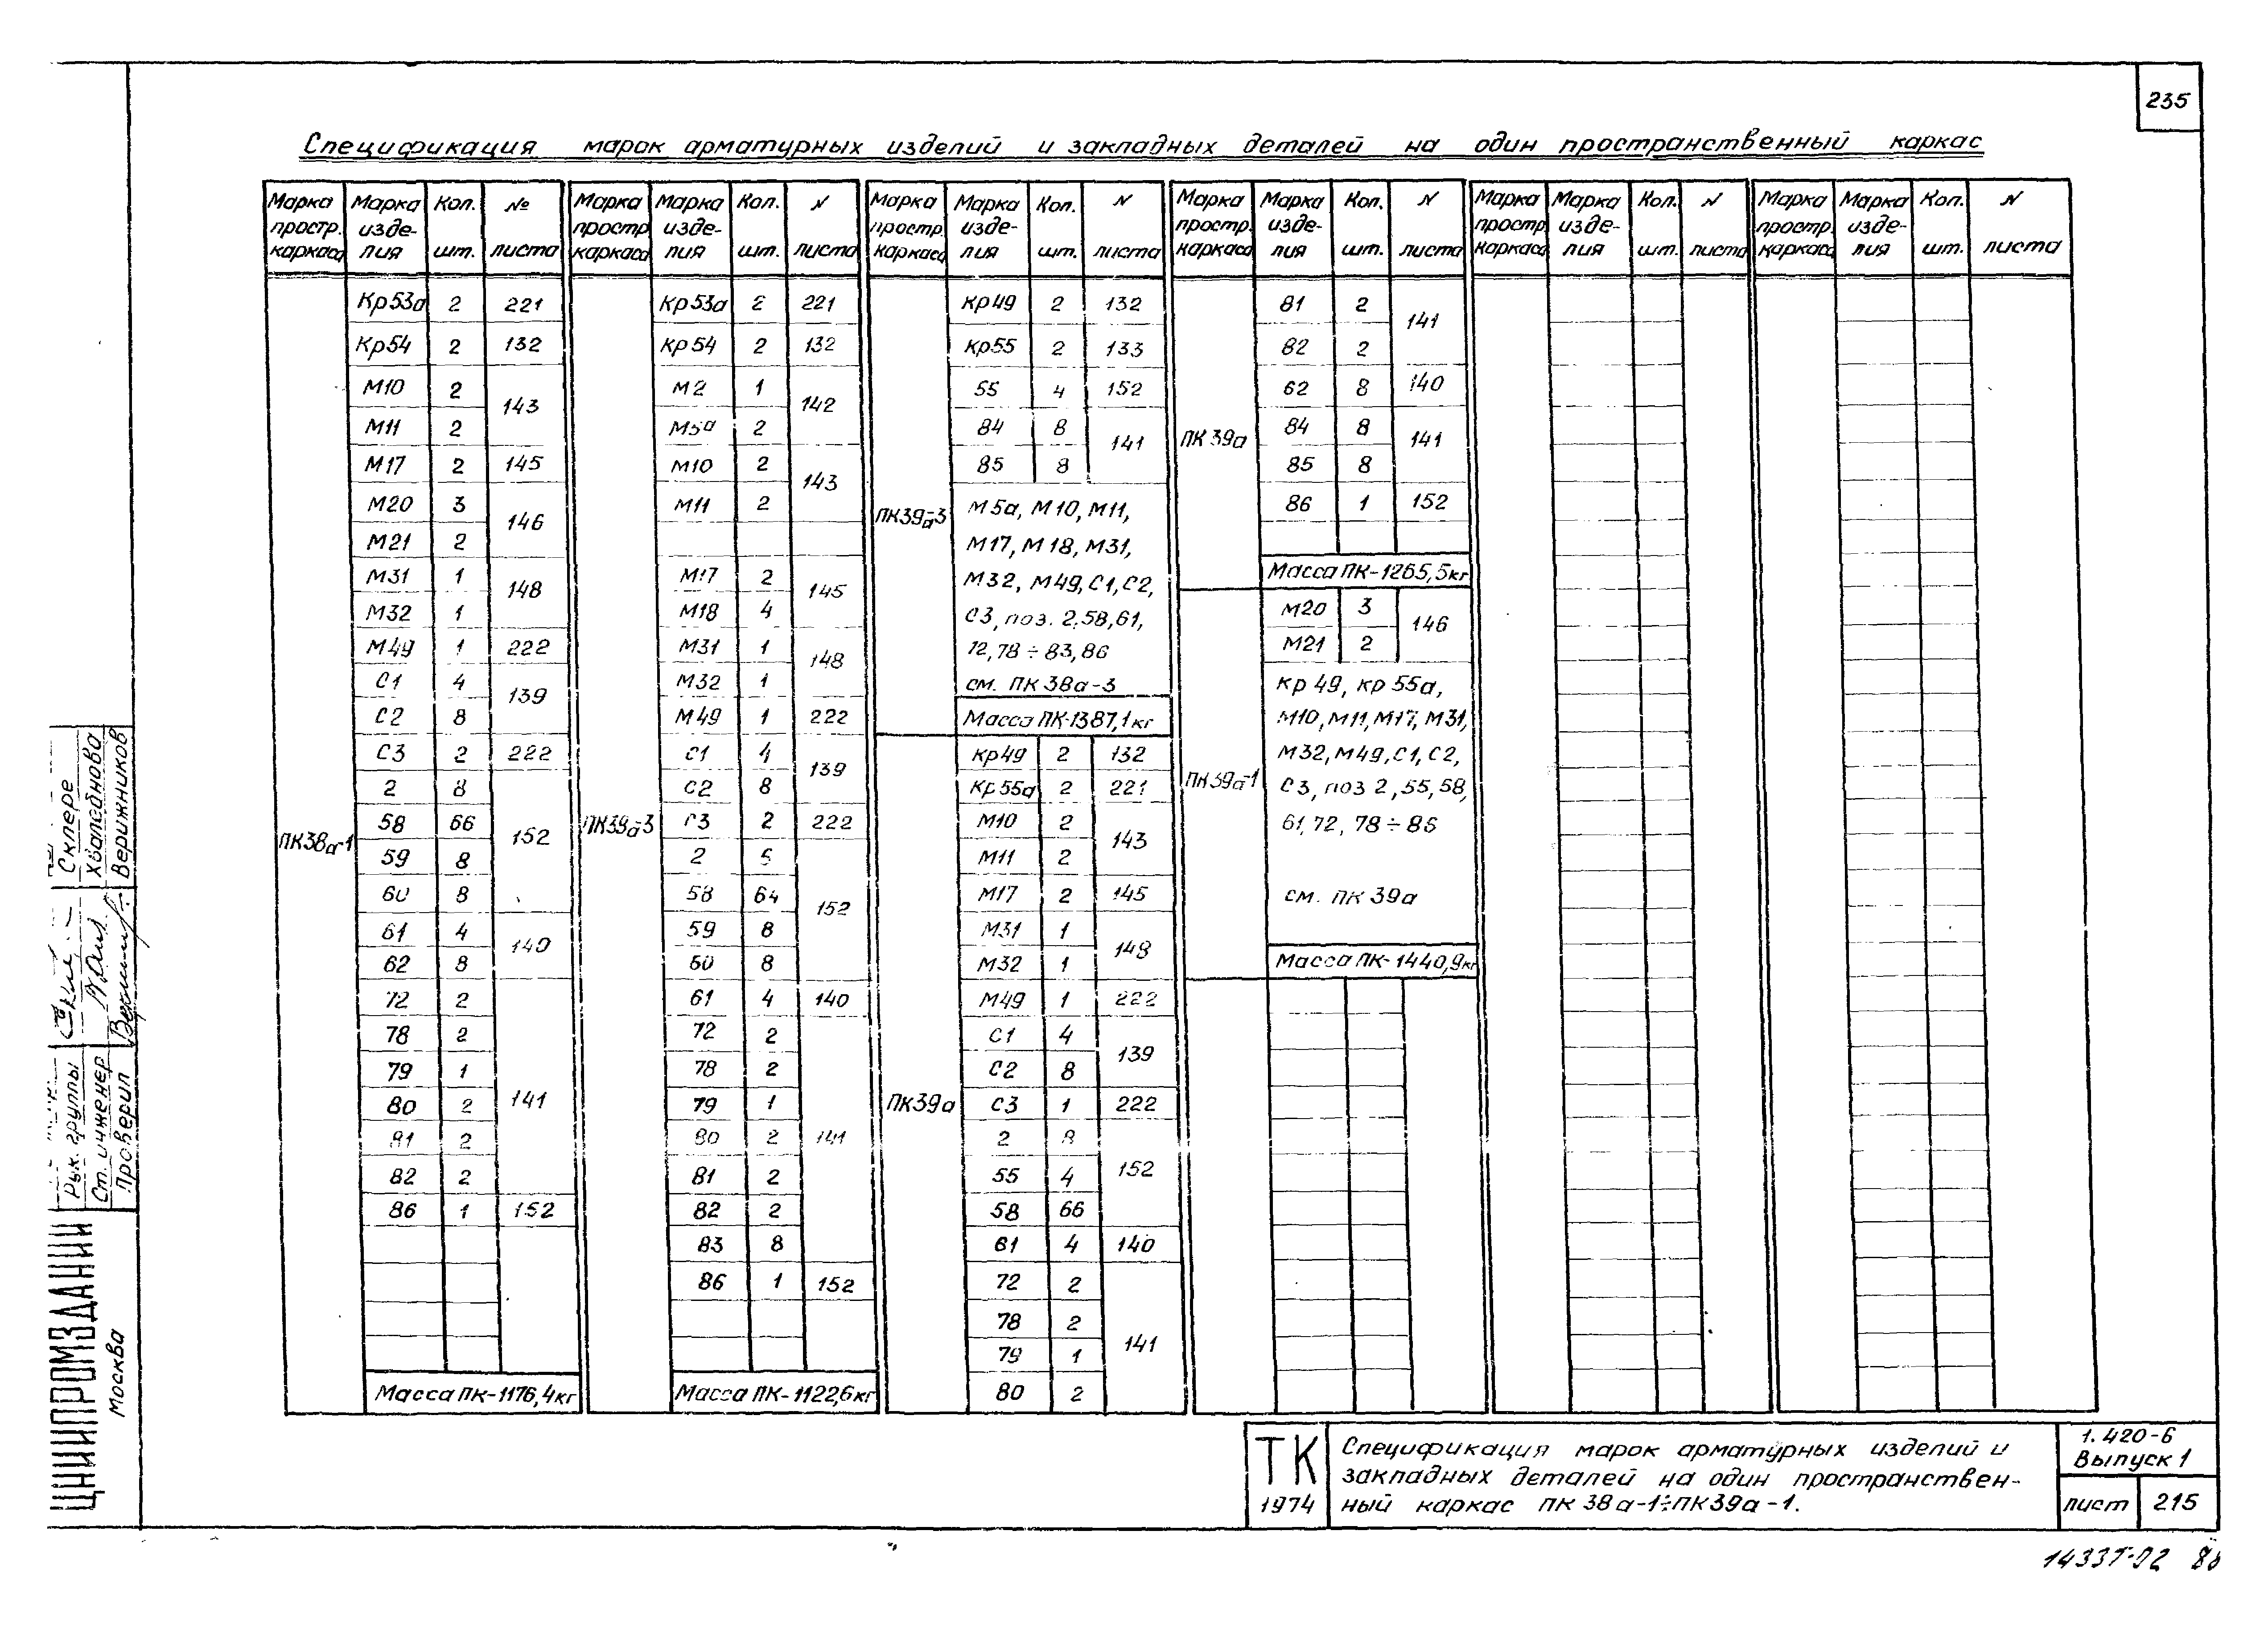 235
Спецификация марок арматурных изделий и закладных деталей на один пространственный каркас
Марка простр. каркаса Марка изделия Кол. шт. № листа
Кр53а 2 221
Кр54 2 132
М10 2 143
М11 2
М17 2 145
М20 3 146
М21 2
М31 1 148
М32 1
М49 1 222
С1 4 139
С2 8
С3 2 222
2 8
58 66 152
ПК38а-1
59 8
60 8
61 4 140
62 8
72 2
78 2
79 1
80 2 141
81 2
82 2
86 1 152
Масса ПК-1176,4кг
Марка простр. каркаса Марка изделия Кол. шт. N листа
Кр53а 2 221
Кр54 2 132
М2 1 142
М5а 2
М10 2 143
М11 2
М17 2 145
М18 4
М31 1 148
М32 1
М49 1 222
С1 4 139
С2 8
ПК39а-3
С3 2 222
2
58 64 152
59 8
60 8
61 4 140
72 2
78 2
79 1
80 2 141
81 2
82 2
83 8
86 1 152
Масса ПК-1122,6кг
Марка простр. каркаса Марка изделия Кол. шт. N листа
Кр49 2 132
Кр55 2 133
55 4 152
84 8 141
85 8
ПК39а-3
М5а, М10, М11,
М17, М18, М31,
М32, М49, С1, С2,
С3, поз. 2,58,61,
72,78÷83,86
см. ПК 38а-3
Масса ПК-1387,1кг
Кр49 2 132
Кр55а 2 221
М10 2 143
М11 2
М17 2 145
М31 1 148
М32 1
М49 1 222
С1 4 139
С2 8
ПК39а
С3 1 222
2 8
55 4 152
58 66
61 4 140
72 2
78 2
79 1 141
80 2
Марка простр. каркаса Марка изделия Кол. шт. N листа
81 2 141
82 2
62 8 140
84 8 141
ПК39а
85 8
86 1 152
Масса ПК-1265,5кг
М20 3 146
М21 2
Кр 49, кр 55а,
М10, М11, М17, М31,
М32, М49, С1, С2,
ПК39а-1
С3, поз 2,55,58,
61,72, 78÷86
см. ПК 39а
Масса ПК-1440,9кг
Марка простр. каркаса Марка изделия Кол. шт. N листа
Марка простр. каркаса Марка изделия Кол. шт. N листа
Склере
Хвалейнова
Верижников
Рук. группы
Ст. инженер
Проверил
ЦНИИПРОМЗДАНИЙ
Москва
ТК
1974
Спецификация марок арматурных изделий и
закладных деталей на один пространствен-
ный каркас ПК 38а-1÷ПК39а-1.
1.420-6
Выпуск 1
лист 215